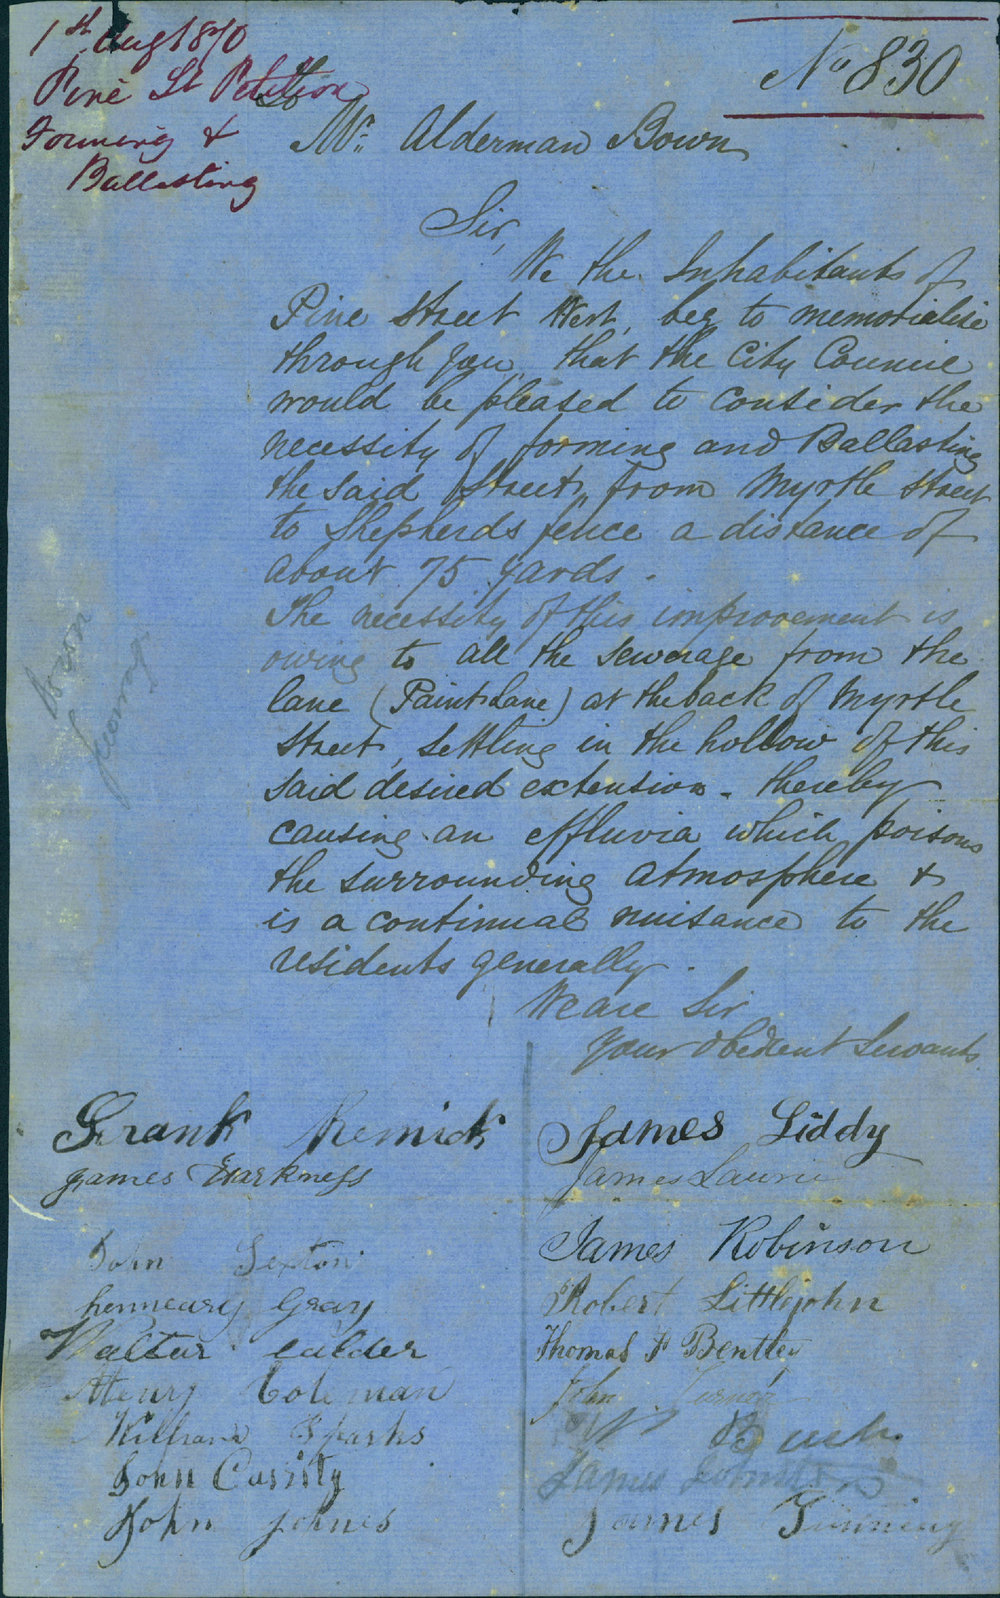 1st Aug 1870
Pine St Petition
Forming &
Ballasting
No 830
To
Mr. Alderman Bown
Sir,
We the Inhabitants of
Pine Street West, beg to memorialise
through you, that the City Council
would be pleased to consider the
necessity of forming and Ballasting
the said Street, from Myrtle Street
to Shepherds fence a distance of
about 75 yards.
The necessity of this improvement is
owing to all the sewerage from the
lane (Paint Lane) at the back of Myrtle
Street, settling in the hollow of this
said desired extension - thereby
causing an effluvia which poisons
the surrounding atmosphere &
is a continual nuisance to the
residents generally.
We are Sir
Your obedient Servants
Frank Remick
James Harkness
John Sexton
henneary Gray
Walter calder
Henry Coleman
William Sparks
John Cassity
John Johnes
James Liddy
James Laurie
James Robinson
Robert Littlejohn
Thomas F Bentley
John Turner
W Buch
James Johnston
James Tunning